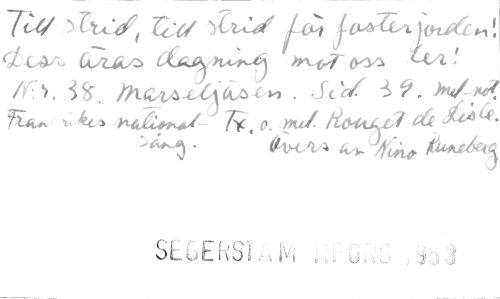 Till strid, till strid för fosterjorden!
Dess äras dagning mot oss ler!
N:r. 38. Marseljäsen. Sid. 39. mel-not.
Frankrikes national- Tx. o. mel. Rouget de Lisle.
sång. Övers av Nino Runeberg
SEGERSTAM HFORS 1953